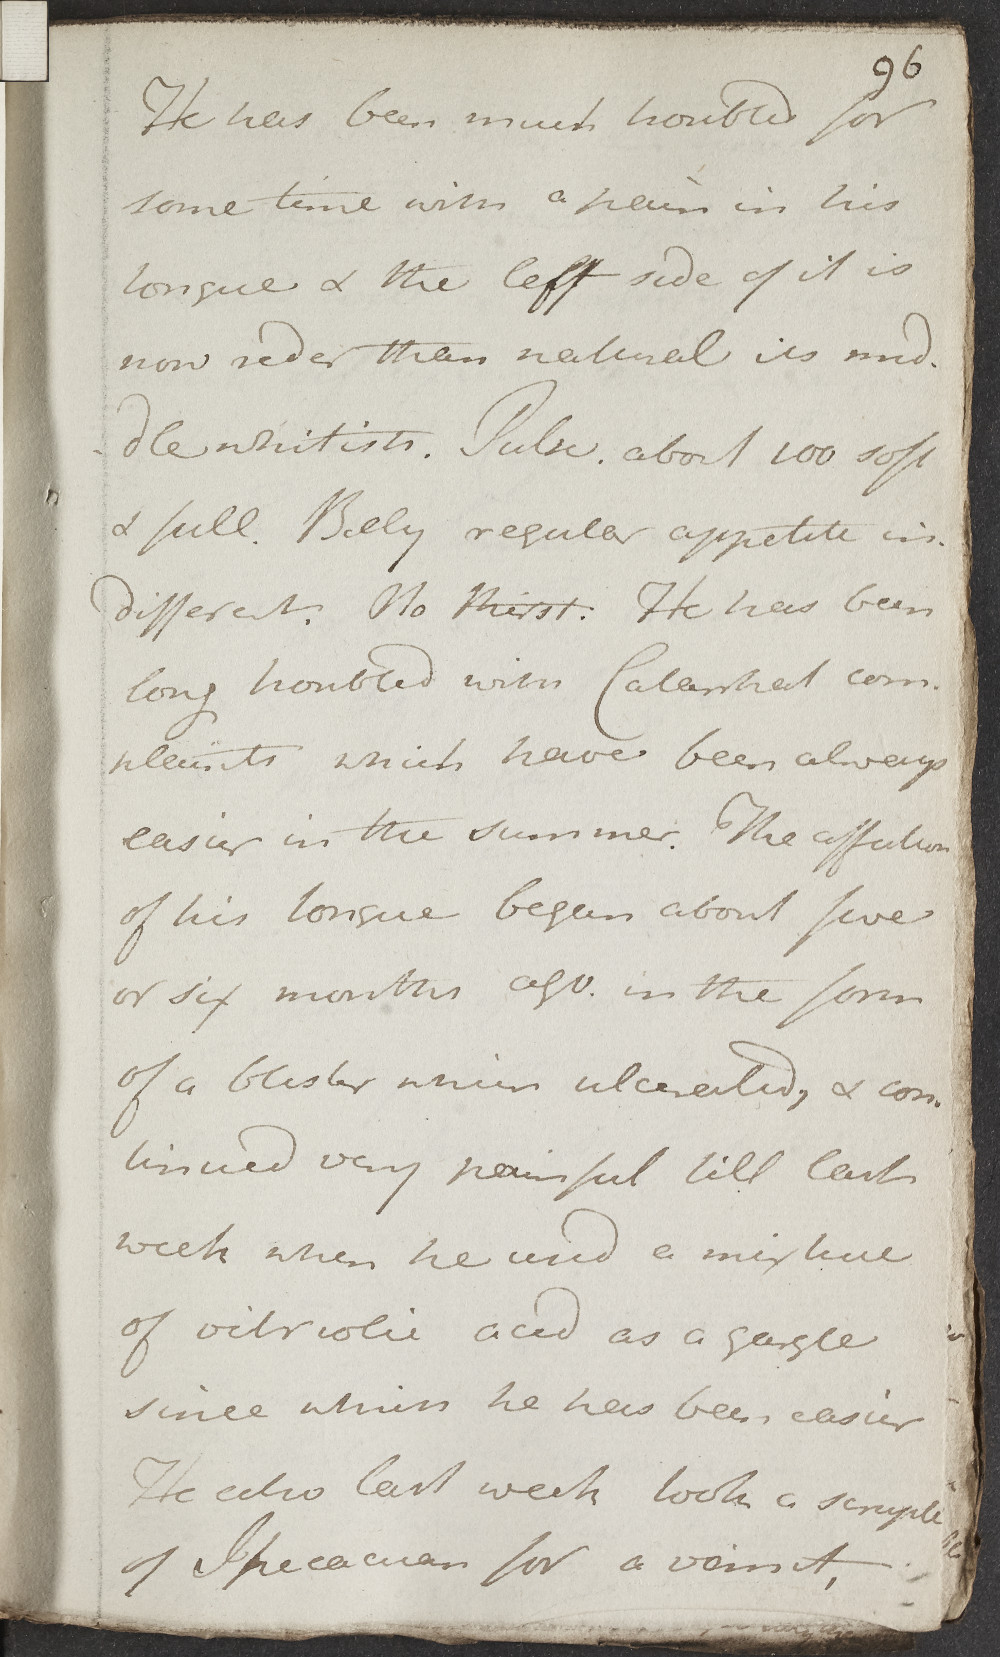 96
He has been much troubled for
some time with a pain in his
tongue & the left side of it is
now reder than natural its mid-
dle whitish. Pulse. about 100 soft
& full. Belly regular appetite in-
different. No thirst. He has been
long troubled with Catarrhal com-
plaints which have been always
easier in the summer. The affection
of his tongue began about five
or six months ago. in the form
of a blister which ulcerated, & con-
tinued very painful till last
week when he used a mixture
of vitriolic acid as a gargle
since which he has been easier
He also last week took a scruple
of Ipecacuan for a vomit,